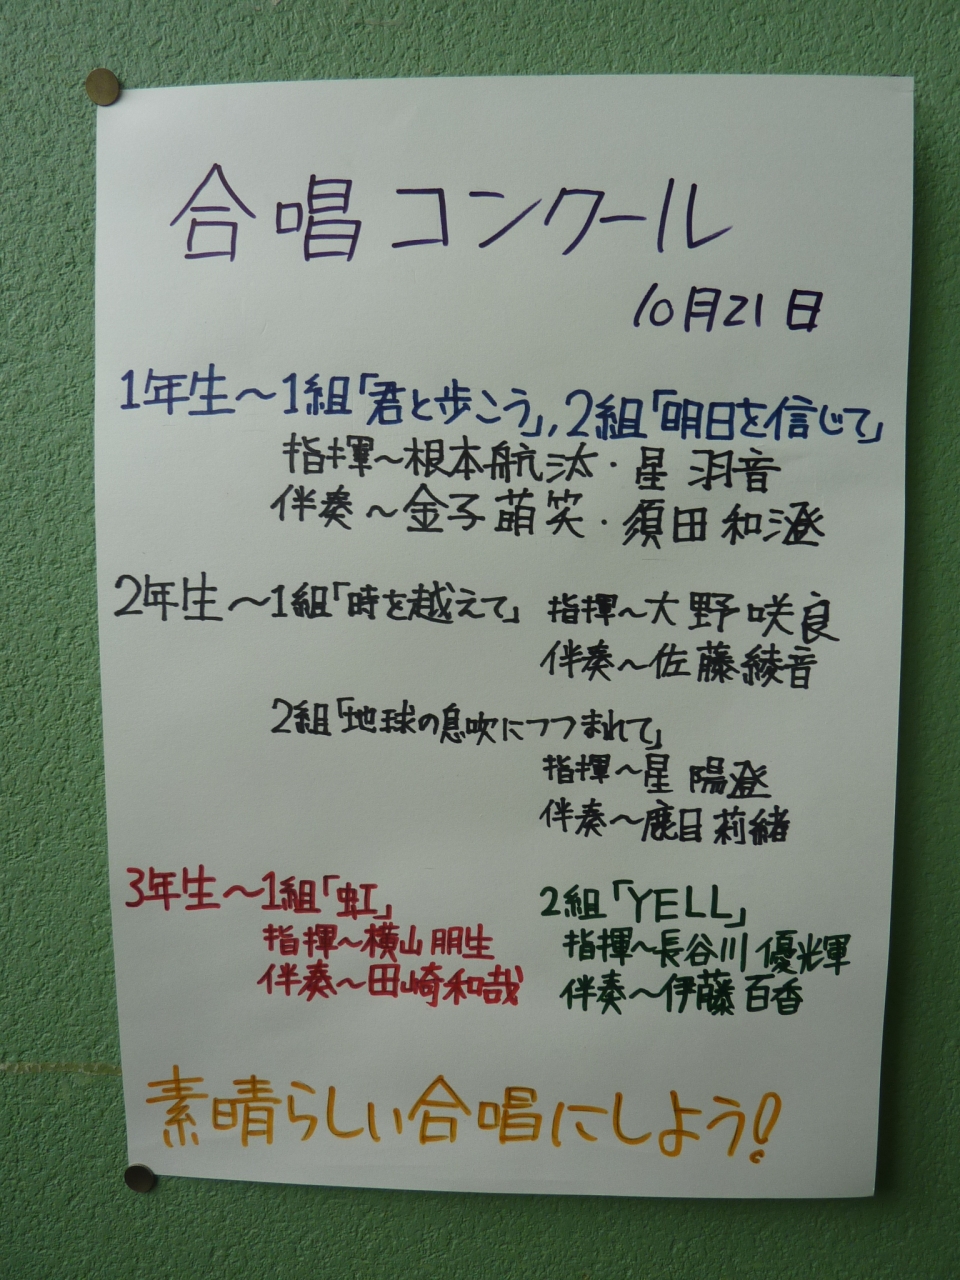 合唱コンクール
10月21日
1年生～1組「君と歩こう」, 2組「明日を信じて」
指揮～根本航汰・星 羽音
伴奏～金子萌笑・須田和澄
2年生～1組「時を越えて」 指揮～大野咲良
伴奏～佐藤綾音
2組「地球の息吹につつまれて」
指揮～星 陽澄
伴奏～鹿目莉緒
3年生～1組「虹」 2組「YELL」
指揮～横山朋生 指揮～長谷川優光輝
伴奏～田崎和哉 伴奏～伊藤百香
素晴らしい合唱にしよう!